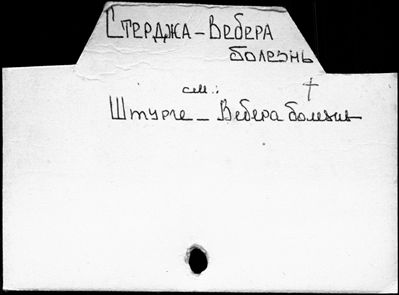 Стерджа-Вебера
болезнь
см.: †
Штурге-Вебера болезнь